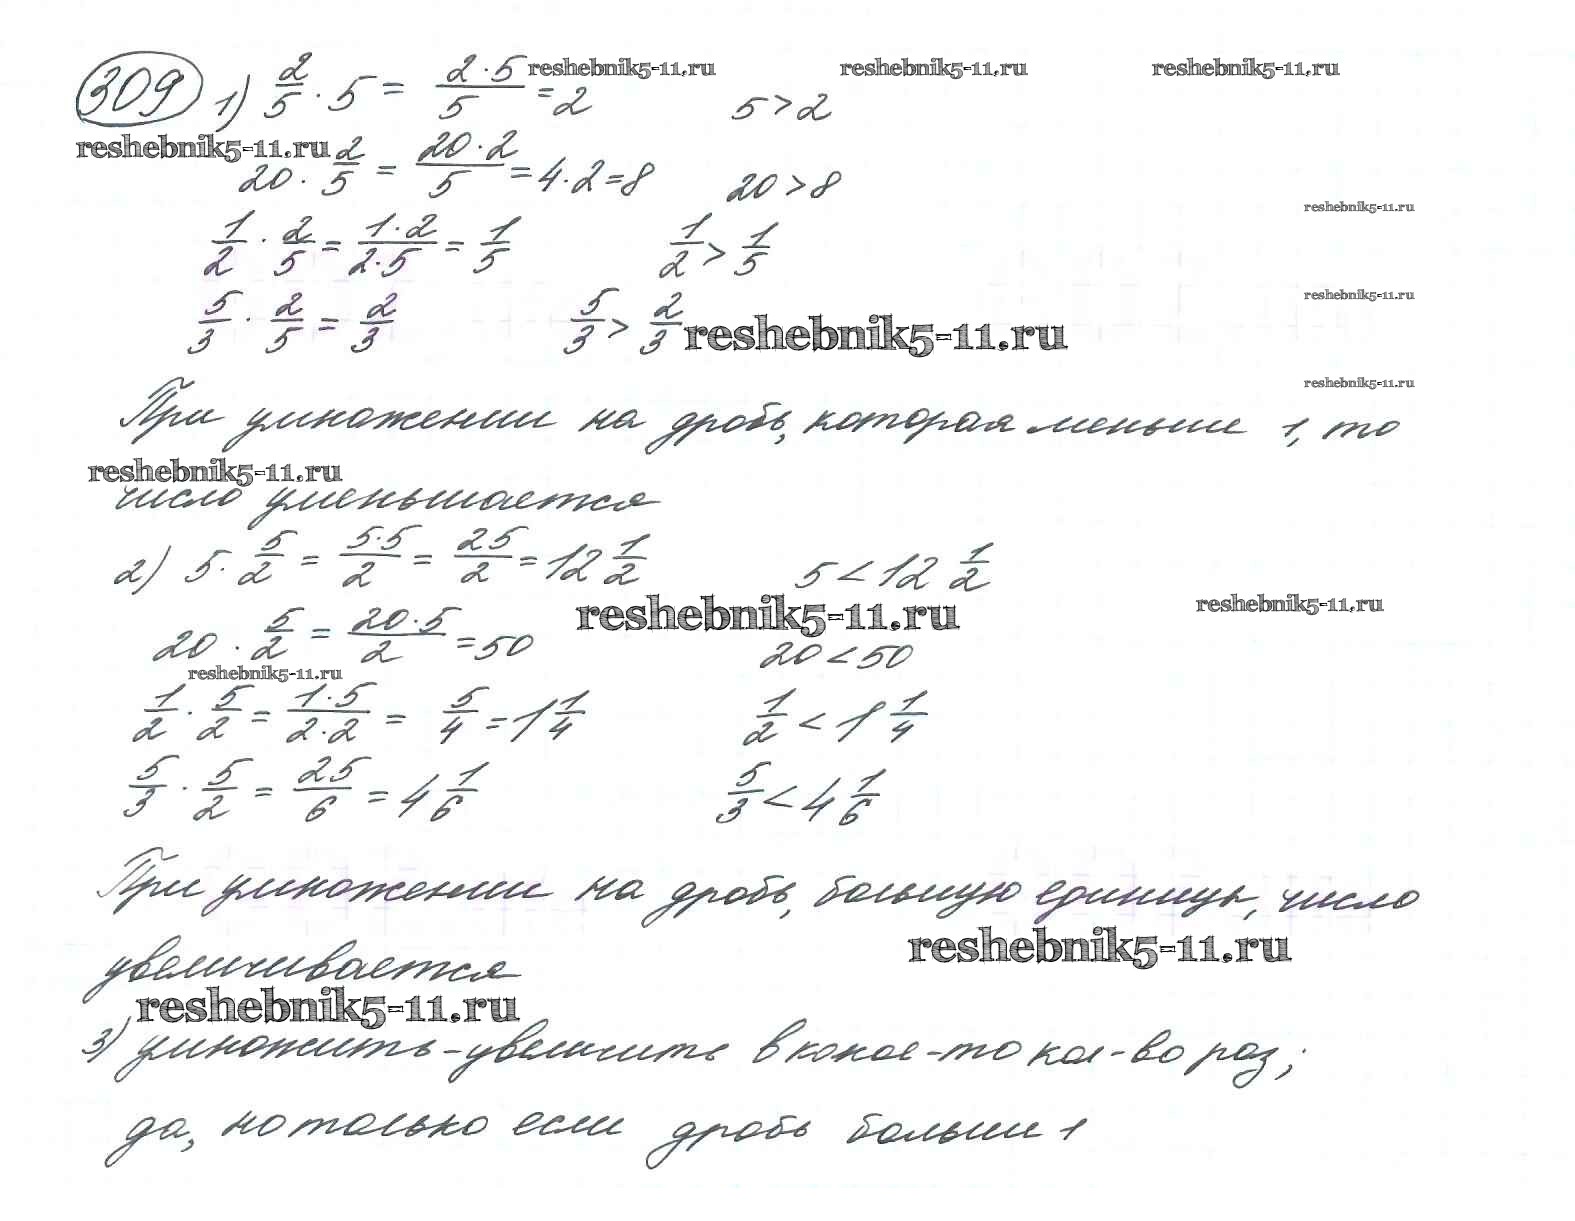 309 1) 2/5 · 5 = 2·5/5 = 2 5 > 2
reshebnik5-11.ru reshebnik5-11.ru reshebnik5-11.ru
reshebnik5-11.ru
20 · 2/5 = 20·2/5 = 4·2 = 8 20 > 8
reshebnik5-11.ru
1/2 · 2/5 = 1·2/2·5 = 1/5 1/2 > 1/5
reshebnik5-11.ru
5/3 · 2/5 = 2/3 5/3 > 2/3
reshebnik5-11.ru
reshebnik5-11.ru
При умножении на дробь, которая меньше 1, то
reshebnik5-11.ru
число уменьшается
2) 5 · 5/2 = 5·5/2 = 25/2 = 12 1/2 5 < 12 1/2
reshebnik5-11.ru reshebnik5-11.ru
20 · 5/2 = 20·5/2 = 50 20 < 50
reshebnik5-11.ru
1/2 · 5/2 = 1·5/2·2 = 5/4 = 1 1/4 1/2 < 1 1/4
5/3 · 5/2 = 25/6 = 4 1/6 5/3 < 4 1/6
При умножении на дробь, большую единицы, число
reshebnik5-11.ru
увеличивается
reshebnik5-11.ru
3) умножить - увеличить в какое-то кол-во раз;
да, но только если дробь больше 1